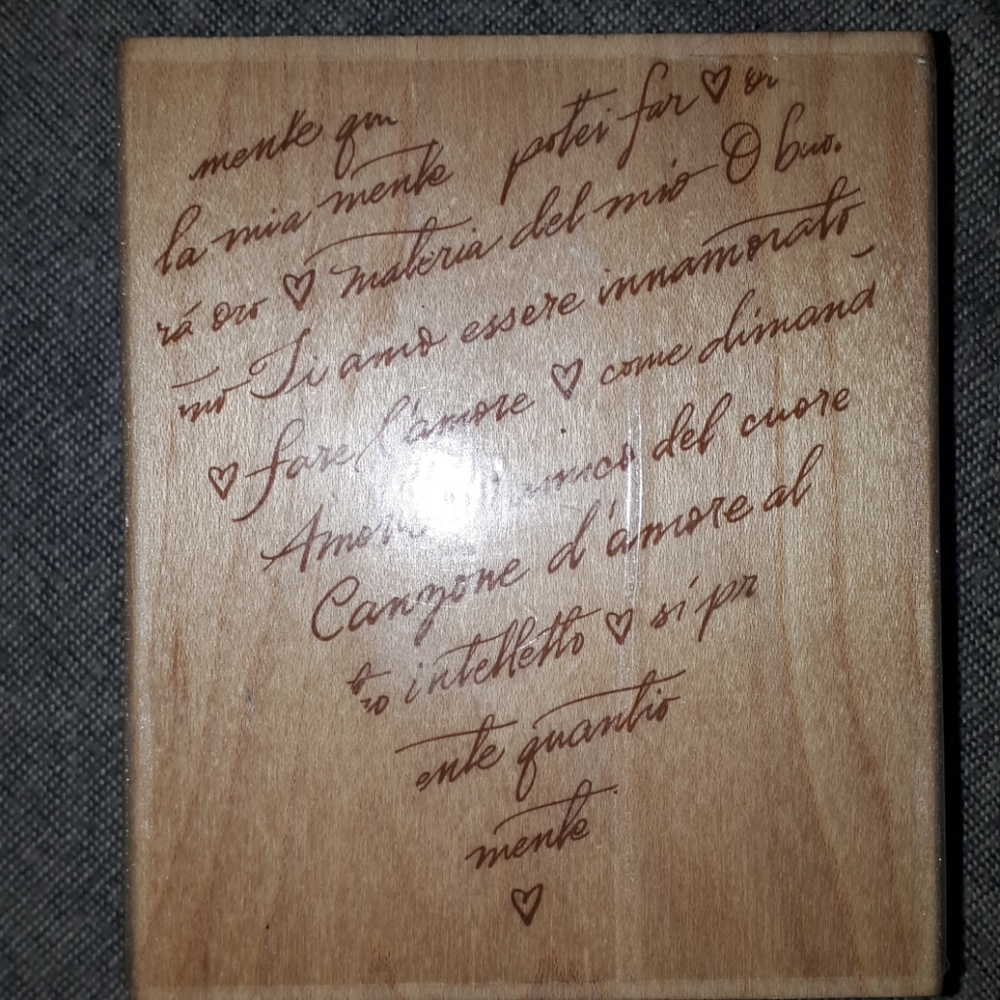 mente qu
la mia mente potei far ♡ or
rá oro ♡ materia del mio O buo.
mo Ti amo essere innamorato
♡ fare l'amore ♡ come dimand
Amor amico del cuore
Canzone d'amore al
to intelletto ♡ si pr
ente quantio
mente
♡